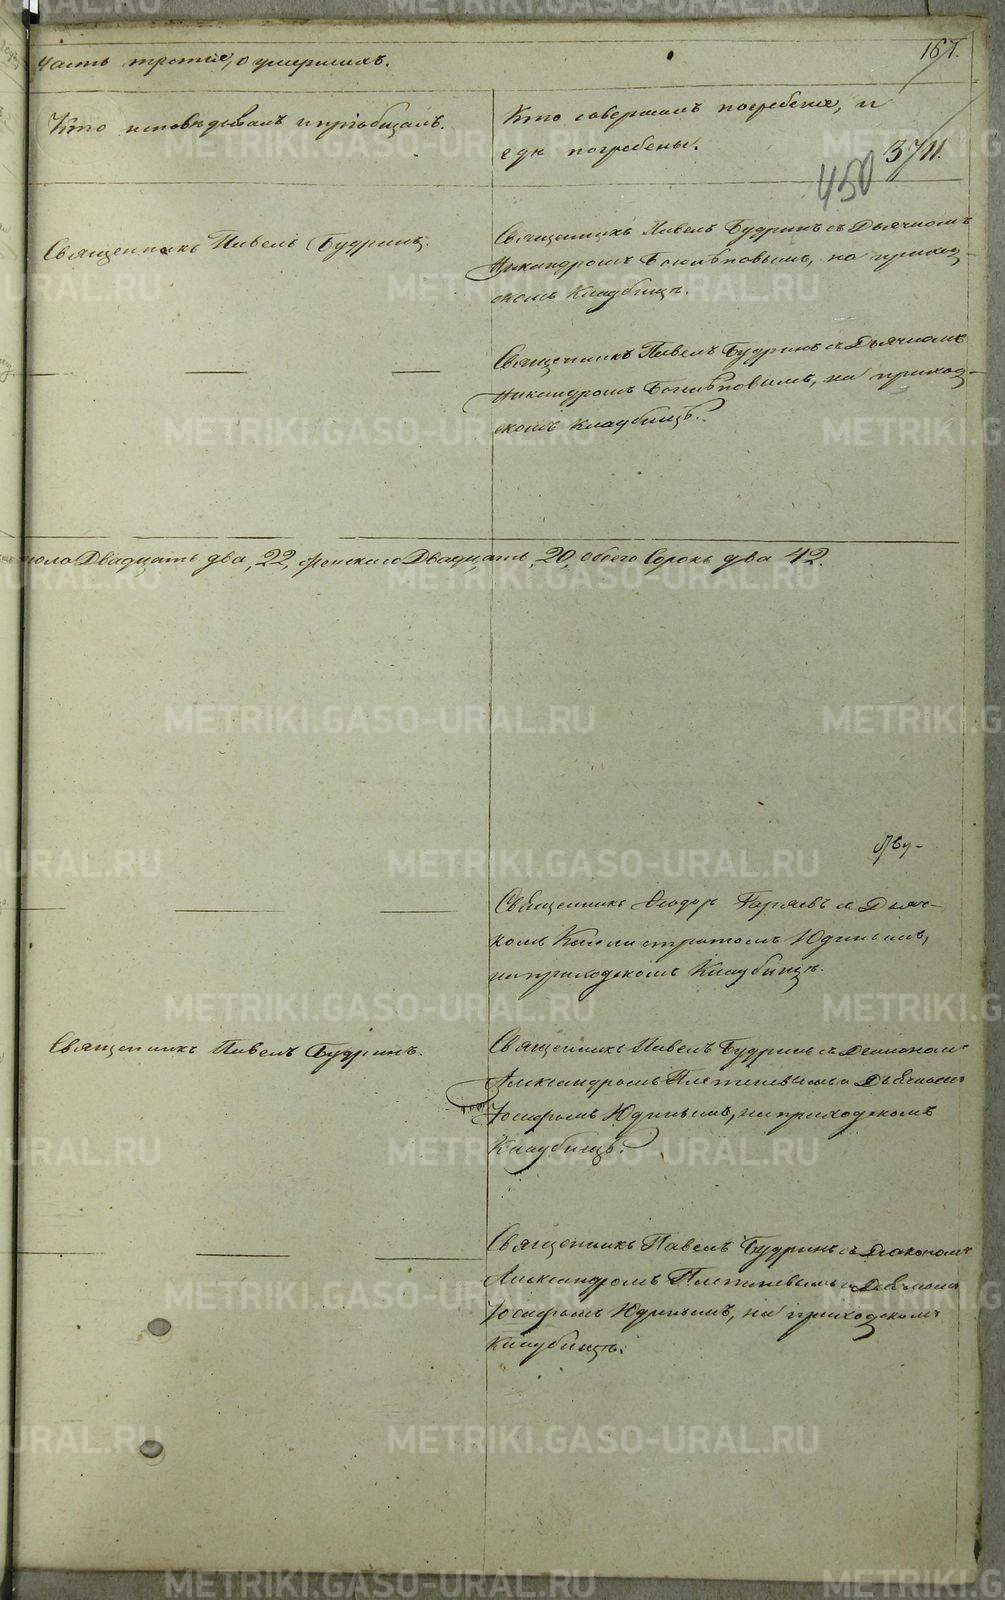 167.
Часть третія, о умершихъ.
Кто исповѣдывалъ и пріобщалъ.
Кто совершалъ погребеніе, и
гдѣ погребены.
371.
450
Священникъ Павелъ Будринъ.
Священникъ Павелъ Будринъ съ Дьячкомъ
Никандромъ на приход-
скомъ Кладбищѣ.
Священникъ Павелъ Будринъ съ Дьячкомъ
Никандромъ на приход-
скомъ Кладбищѣ.
пола Двадцать два, 22, женскаго Двадцать, 20, обоего Сорокъ два 42.
Священникъ Ѳеодоръ Гаряевъ съ Дьяч-
комъ Каллистратомъ Юдинымъ,
на приходскомъ Кладбищѣ.
Священникъ Павелъ Будринъ.
Священникъ Павелъ Будринъ съ Діакономъ
Александромъ Плетневымъ и Дьячкомъ
Іосифомъ Юдинымъ, на приходскомъ
Кладбищѣ.
Священникъ Павелъ Будринъ съ Діакономъ
Александромъ Плетневымъ и Дьячкомъ
Іосифомъ Юдинымъ, на приходскомъ
Кладбищѣ.
METRIKI.GASO-URAL.RU